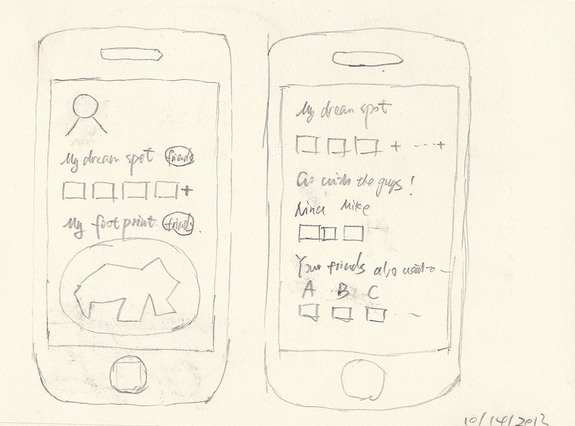 My dream spot friends
+
My foot print friends
My dream spot
+ ... +
Go with the guys!
Nina Mike
Your friends also
A B C
10/14/2013